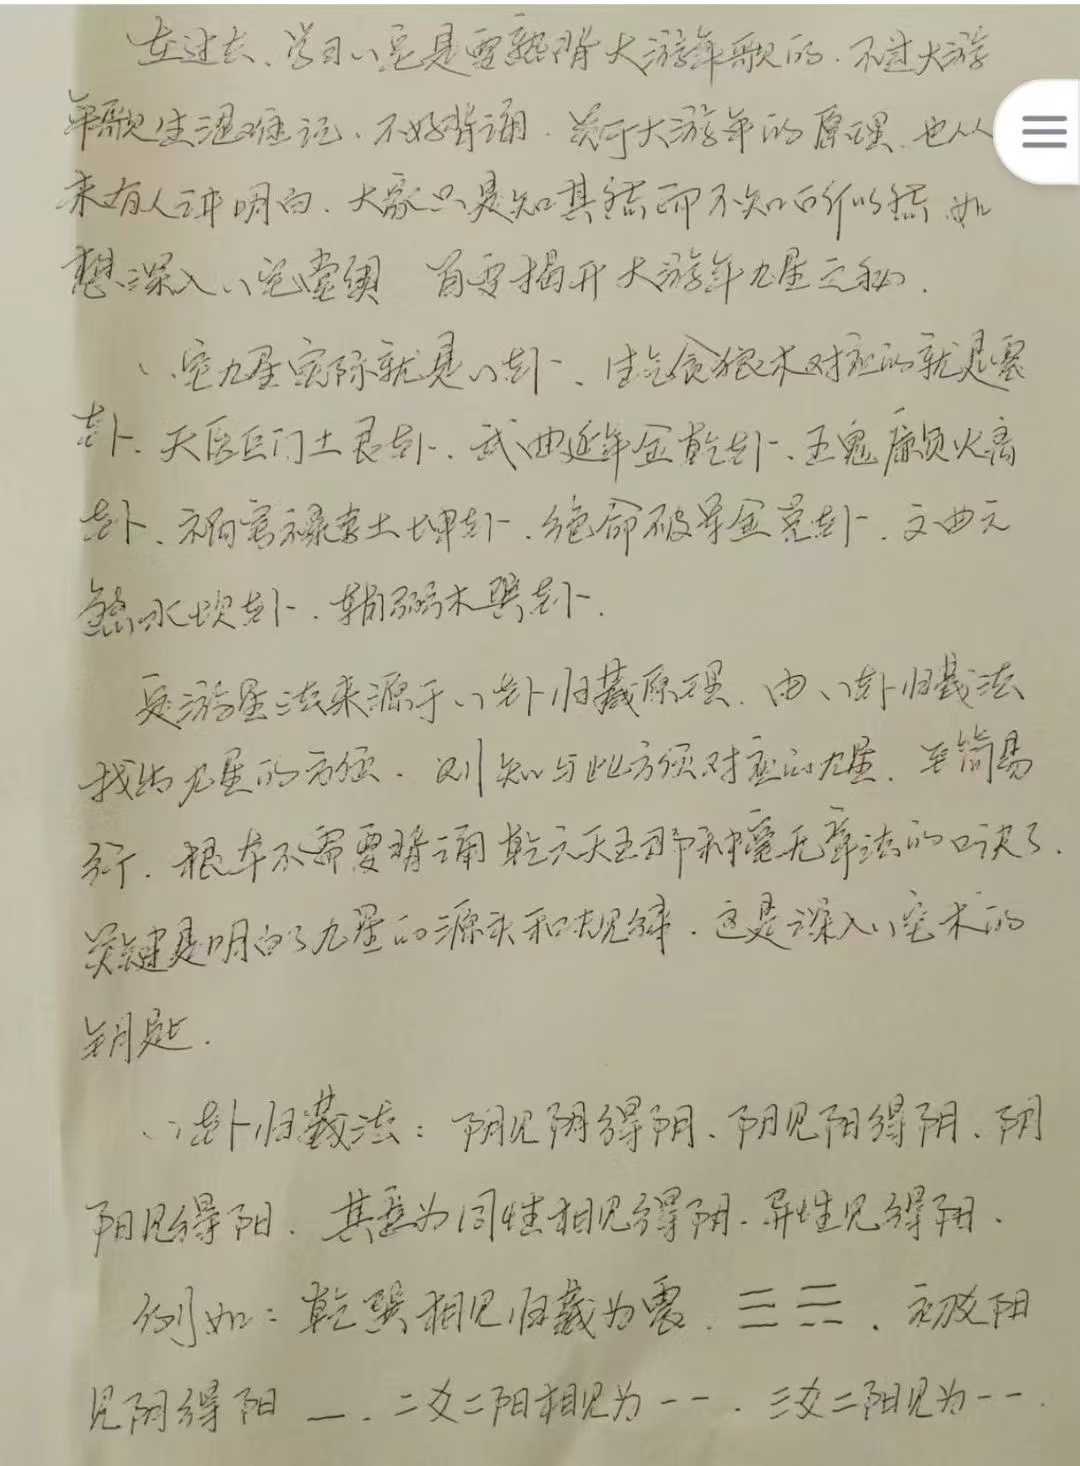 在过去、学习八宅是要熟背大游年歌的.不过大游
年歌生涩难记、不好背诵.关于大游年的原理.也从
来有人讲明白.大家只是知其然而不知所以然.如
想深入八宅堂奥 首要揭开大游年九星之秘.
八宅九星实际就是八卦、生气贪狼木对应的就是震
卦、天医巨门土艮卦、武曲延年金乾卦、五鬼廉贞火离
卦、祸害禄存土坤卦、绝命破军金兑卦、文曲六
煞水坎卦、辅弼木巽卦.
游星法来源于八卦归藏原理.由八卦归藏法
找出九星的方位.则知与此方位对应的九星.至简易
行.根本不需要背诵乾六天五那种毫无章法的口诀了.
关键是明白了九星的源头和规律.这是深入八宅术的
钥匙.
八卦归藏法:阴见阴得阴、阳见阳得阴、阴
阳见得阳.其为同性相见得阴.异性见得阳.
例如:乾巽相见归藏为震.☰ ☴.初爻阳
见阴得阳 —.二爻二阳相见为--.三爻二阳见为--.